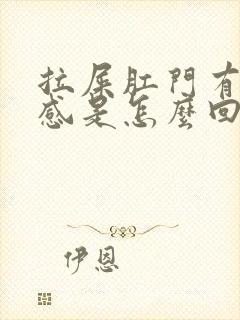 拉屎肛門有
感是怎麼回
伊恩